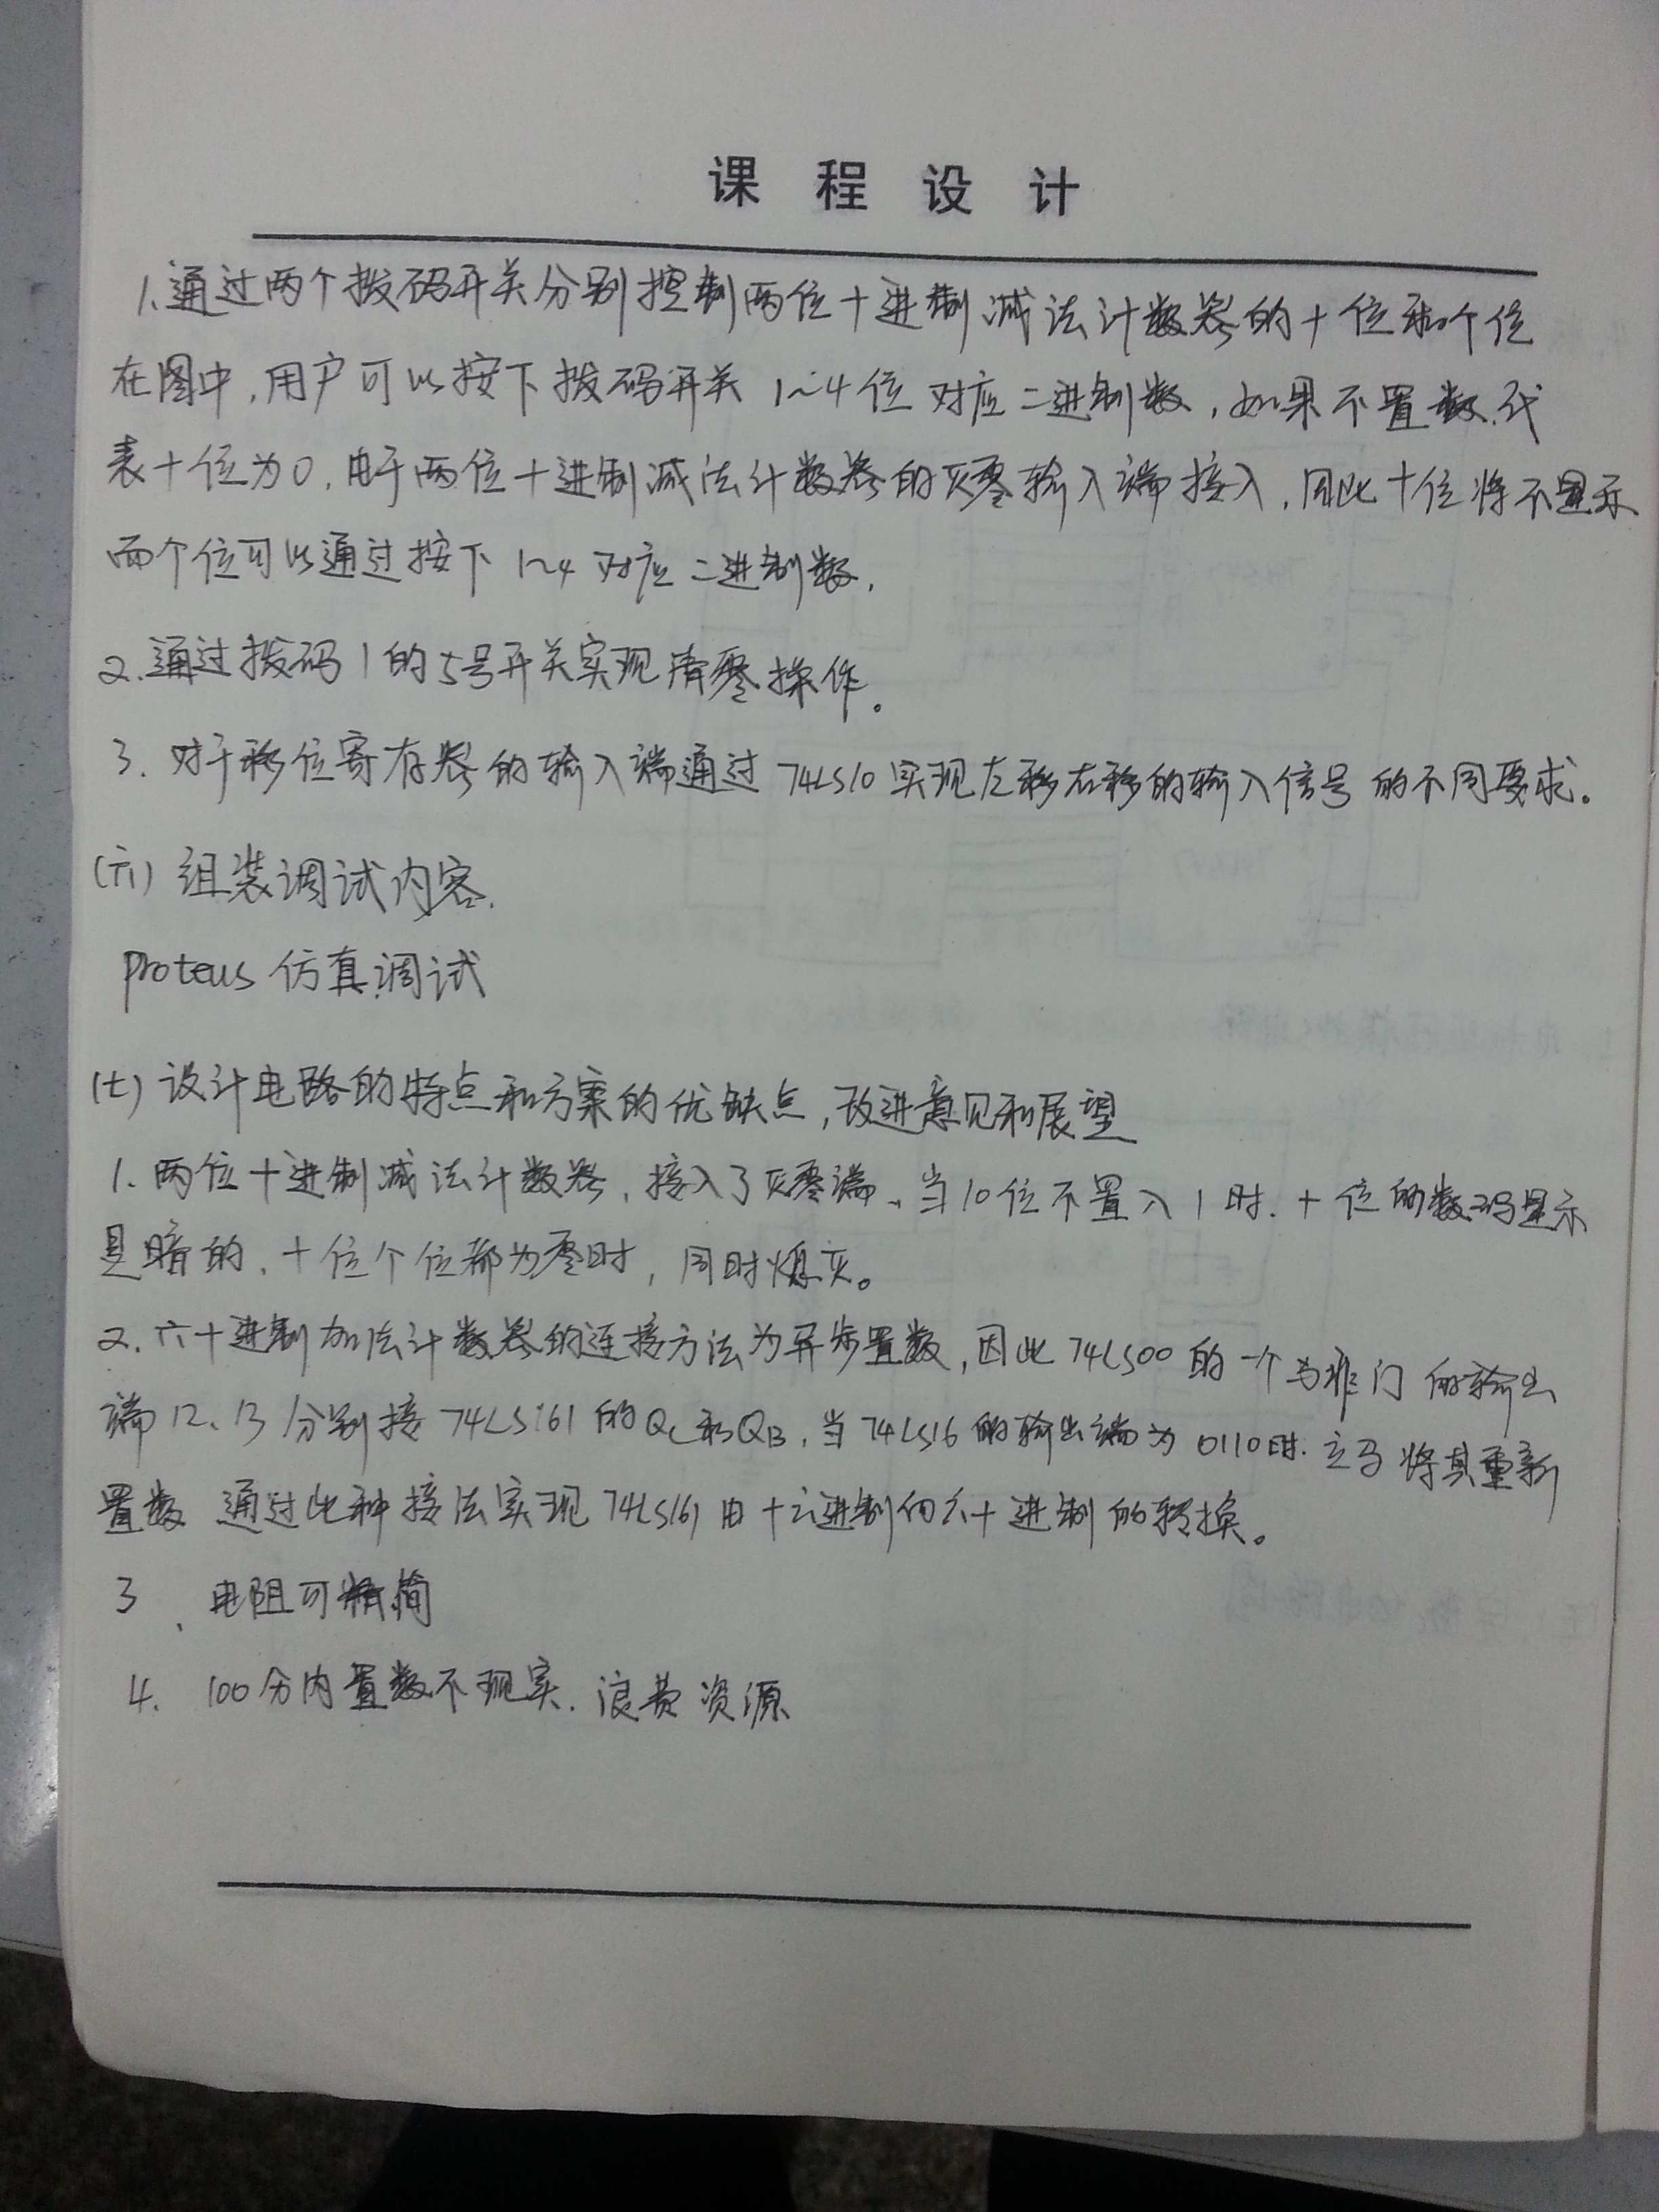 课程设计
1.通过两个拨码开关分别控制两位十进制减法计数器的十位和个位
在图中,用户可以按下拨码开关1~4位对应二进制数,如果不置数,代
表十位为0,由于两位十进制减法计数器的灭零输入端接入,因此十位将不显示
而个位可以通过按下1~4对应二进制数.
2.通过拨码1的5号开关实现清零操作。
3.对于移位寄存器的输入端通过74LS10实现左移右移的输入信号的不同要求。
(六)组装调试内容.
proteus仿真调试
(七)设计电路的特点和方案的优缺点,改进意见和展望
1.两位十进制减法计数器,接入了灭零端、当10位不置入1时.十位的数码显示
是暗的、十位个位都为零时,同时熄灭。
2.六十进制加法计数器的连接方法为异步置数,因此74LS00的一个与非门的输出
端12、13分别接74LS161的QC和QB,当74LS16的输出端为0110时.立马将其重新
置数 通过此种接法实现74LS161由十六进制向六十进制的转换。
3、电阻可精简
4.100分内置数不现实.浪费资源